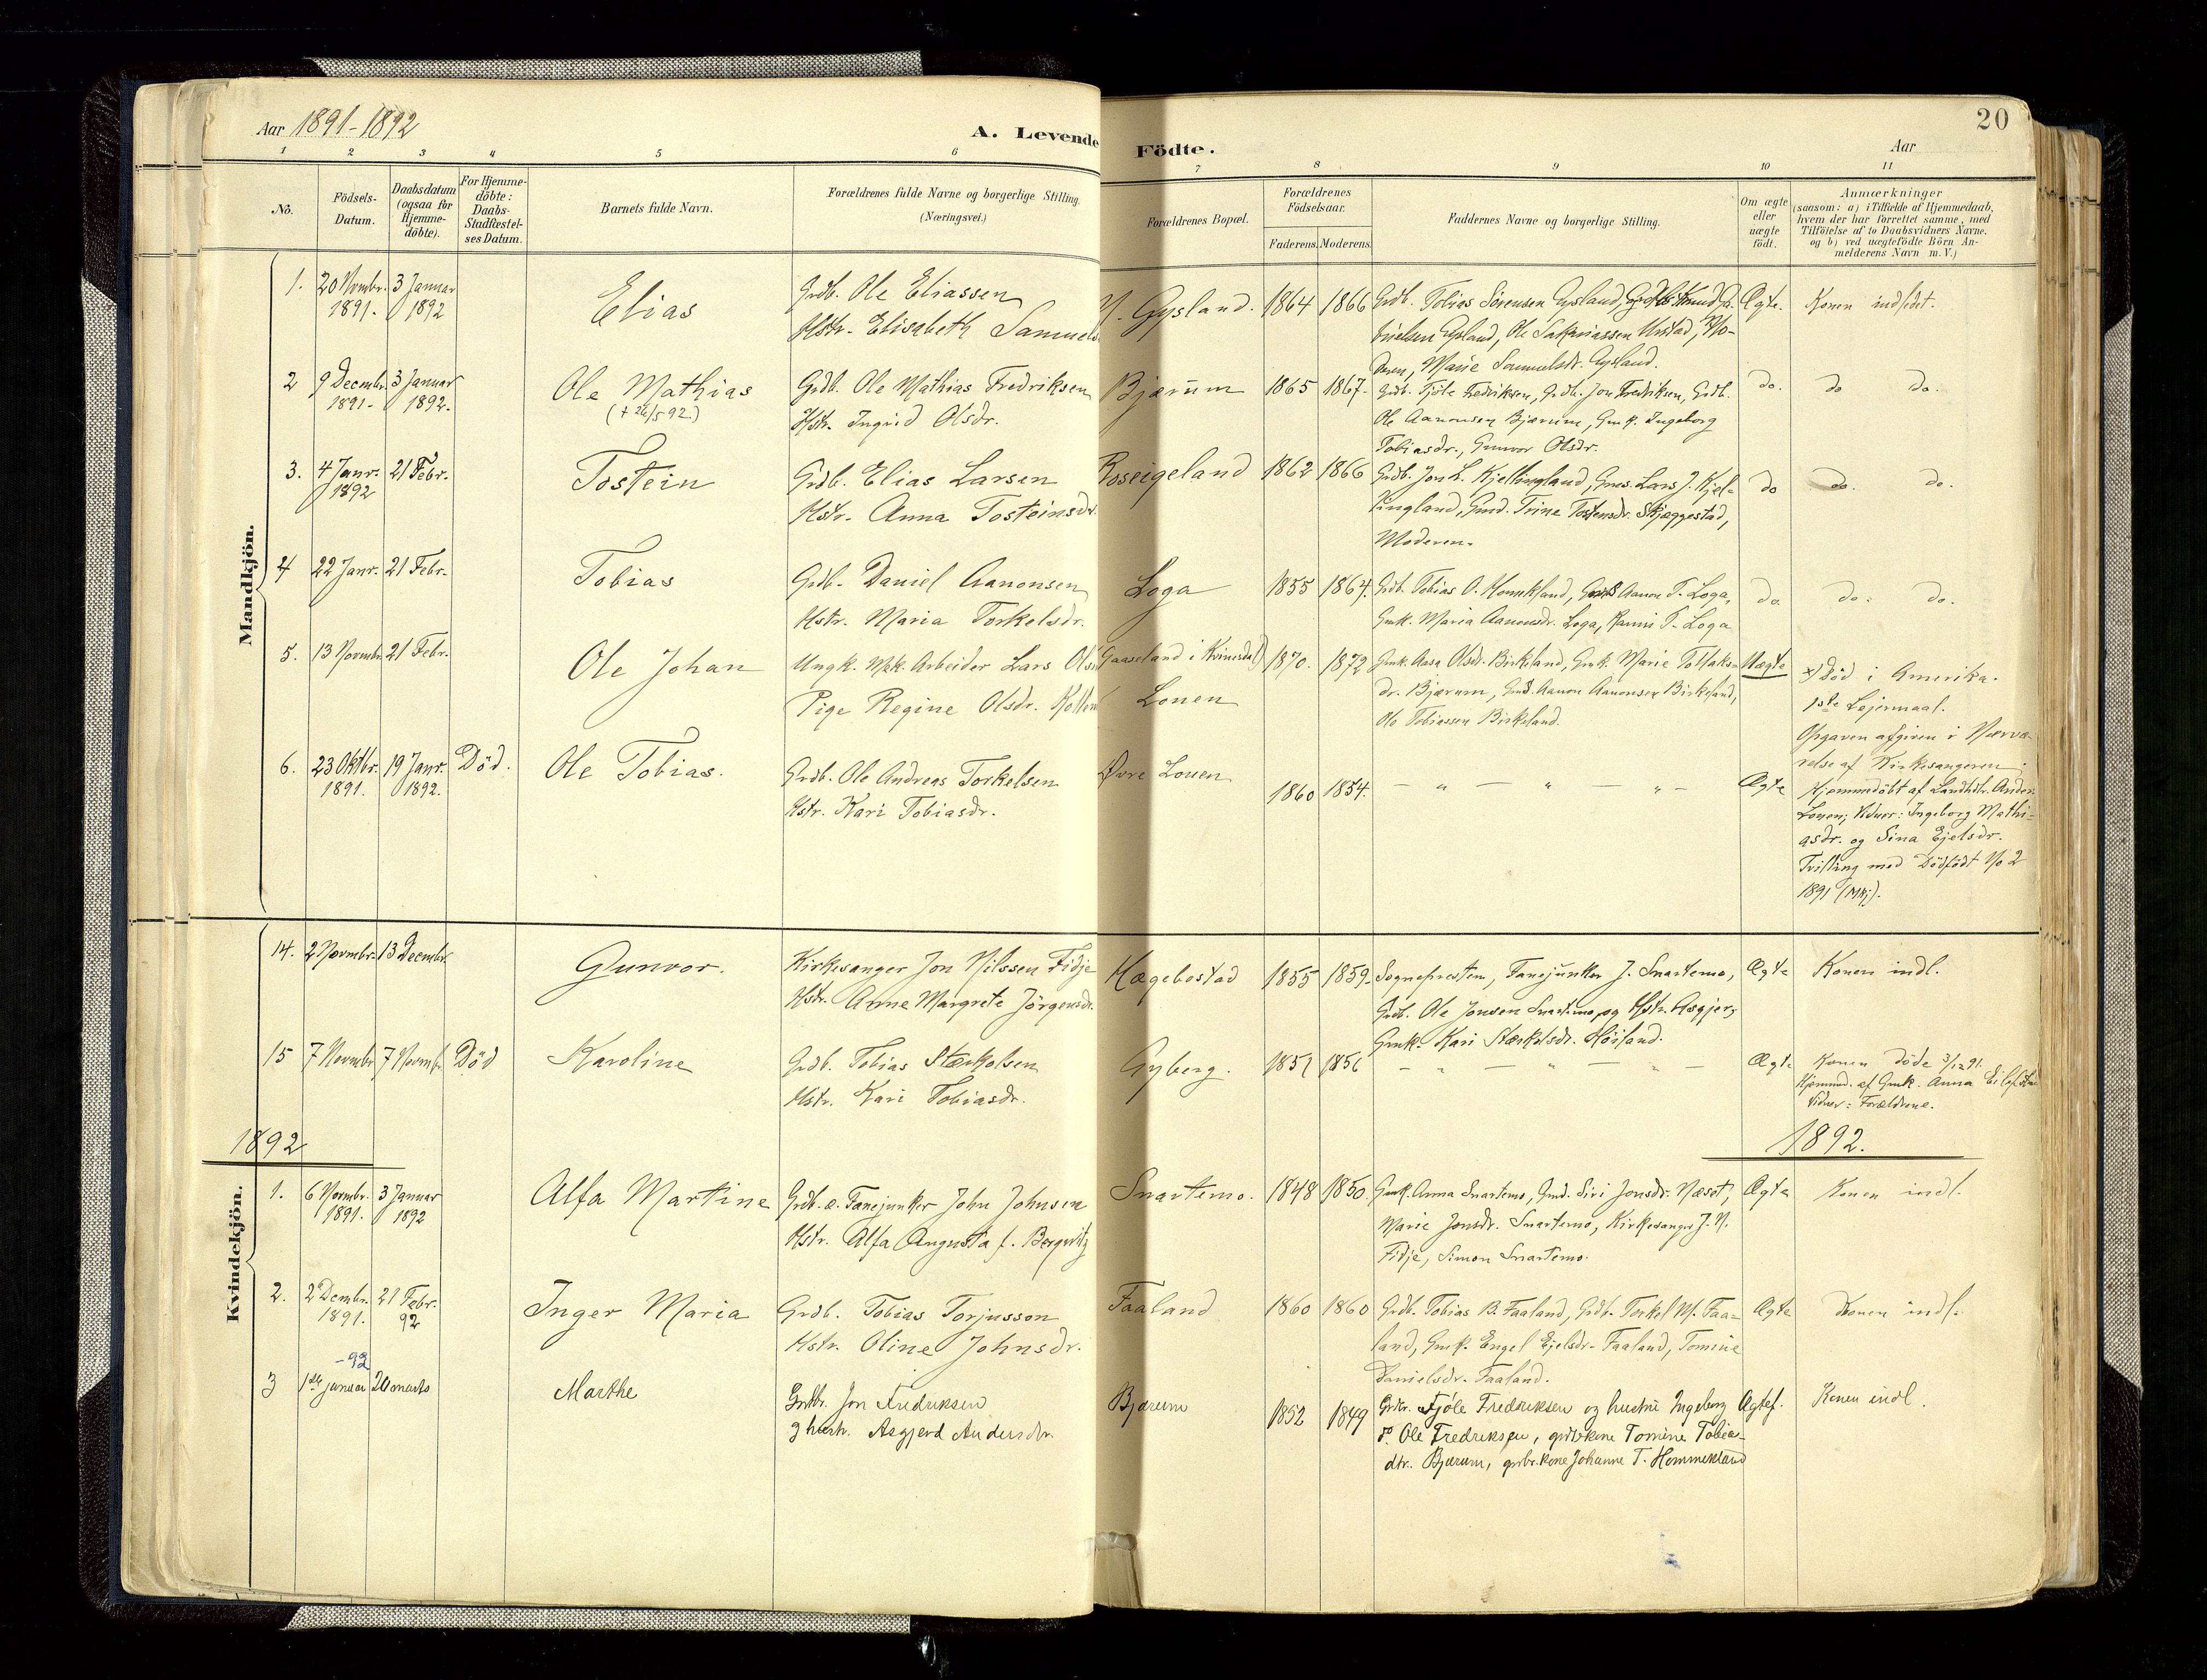 Aar 1891-1892
A. Levende Födte.
Aar
20
1 2 3 4 5 6 7 8 9 10 11
No.
Födsels-
Datum.
Daabsdatum
(ogsaa for
Hjemme-
döbte).
For Hjemme-
döbte:
Daabs-
Stadfæstel-
ses Datum.
Barnets fulde Navn.
Forældrenes fulde Navne og borgerlige Stilling.
(Næringsvei.)
Forældrenes Bopæl.
Forældrenes
Födselsaar.
Faderens. Moderens.
Faddernes Navne og borgerlige Stilling.
Om ægte
eller
uægte
födt.
Anmærkninger
(saasom: a) i Tilfælde af Hjemmedaab,
hvem der har forrettet samme, med
Tilföielse af to Daabsvidners Navne.
og b) ved uægtefödte Börn An-
melderens Navn m. V.)
Mandkjön.
1. 20 Novmbr. 1891. 3 Januar 1892
Elias
Grdb. Ole Eliassen
Hstr. Elisabeth Samuels
N. Gysland. 1864 1866
Grdb. Tobias Sörensen Gysland, Knud
Gysland, Ole Sakariassen Urstad, Mo-
deren, Marie Samuelsdr. Gysland.
Ægte. Konen indledet.
2 9 Decmbr. 1891- 3 Januar 1892.
Ole Mathias
(+ 26/5 92.)
Grdb. Ole Mathias Fredriksen
Hstr. Ingrid Olsdr.
Bjærum 1865 1867.
Grdb. Fjöle Fredriksen, Grdb. Jon Fredriksen, Grdb.
Ole Aanonsen Bjærum, Gmk. Ingeborg
Tobiasdr., Gunvor Olsdr.
do. do do.
3. 4 Janr. 1892 21 Febr.
Tostein
Grdb. Elias Larsen
Hstr. Anna Tosteinsdr.
Roseigeland 1862 1866
Grdb. Jon L. Kjellingland, Gms. Lars J. Kjel-
lingland, Gmd. Trine Tostensdr. Skjeggestad,
Moderen.
do do. do.
4 22 Janr. 21 Febr.
Tobias
Grdb. Daniel Aanonsen
Hstr. Maria Torkelsdr.
Loga 1855 1864.
Grdb. Tobias O. Homekland, Aanon T. Loga,
Gmk. Maria Aanonsdr. Loga, T. Loga
do. do. do.
5. 13 Novmbr 21 Febr.
Ole Johan
Ungk. Arbeider Lars
Pige Regine Olsdr.
Gaaseland i Kvinesdal
Lonen
1870. 1872
Gmk. Aasa Olsdr. Birkeland, Gmk. Marie Tollaks-
dr. Bjærum, Gmd. Aanon Aanonsen Birkeland,
Ole Tobiassen Birkeland.
Uægte
x) Död i Amerika.
1ste Lejermaal.
Opgaven afgiven i Nærvæ-
relse af Kirkesangeren
6. 23 Oktbr. 1891. 19 Janr. 1892. Död.
Ole Tobias.
Grdb. Ole Andreas Torkelsen
Hstr. Kari Tobiasdr.
Övre Lonen
1860 1854.
— " — " — " —
Ægte
Hjemmedöbt af
Lonen; Ingeborg Mathi-
asdr. og Sina Ejelsdr.
Tvilling med Dödfödt No 2
1891 (Mkj).
Kvindekjön.
14. 2 Novmbr. 13 Decmbr.
Gunvor.
Kirkesanger Jon Nilssen Fidje
Hstr. Anne Margrete Jörgensdr.
Hægebostad 1855 1859.
Sognepresten, Fanejunker J. Snartemo,
Grdb. Ole Jonsen Snartemo og Hstr. Asgjer,
Gmk. Kari Stærkelsdr. Höiland.
Ægte Konen indl.
15 7 Novmbr 7 Novmbr Död
Karoline
Grdb. Tobias Stærkelsen
Hstr. Kari Tobiasdr.
Gyberg. 1851 1851
— " — " — " —
Ægte
Konen döde 3/12 91.
Hjemmed. af Gmk. Anna
Vidner: Forældrene.
1892
1892.
1. 6 Novmbr. 1891. 3 Januar 1892
Alfa Martine
Grdb. & Fanejunker John Johnsen
Hstr. Alfa Augusta f. Bergwitz
Snartemo. 1848 1850.
Gmk. Anna Snartemo, Gmd. Siri Jonsdr. Næset,
Marie Jonsdr. Snartemo, Kirkesanger J. N.
Fidje, Simon Snartemo.
Ægte Konen indl.
2. 2 Dcmbr. 1891. 21 Febr. 92
Inger Maria
Grdb. Tobias Torjusson
Hstr. Oline Johnsdr.
Faaland 1860 1860
Grdb. Tobias B. Faaland, Grdb. Torkel M. Faa-
land, Gmk. Engel Ejelsdr. Faaland, Tomine
Danielsdr. Faaland.
Ægte Konen indl.
- 92
3 1ste januar 20 marts
Marthe
Grdbr. Jon Fredriksen
g hustr. Asgjerd Andersdtr.
Bjærum 1852 1849
Grbr. Fjöle Fredriksen og hustru Ingeborg
do. Ole Fredriksen, grdbrkone Tomine Tobias-
dtr. Bjærum, grbr.kone Johanne T. Hommekland
Ægtef. Konen indl.